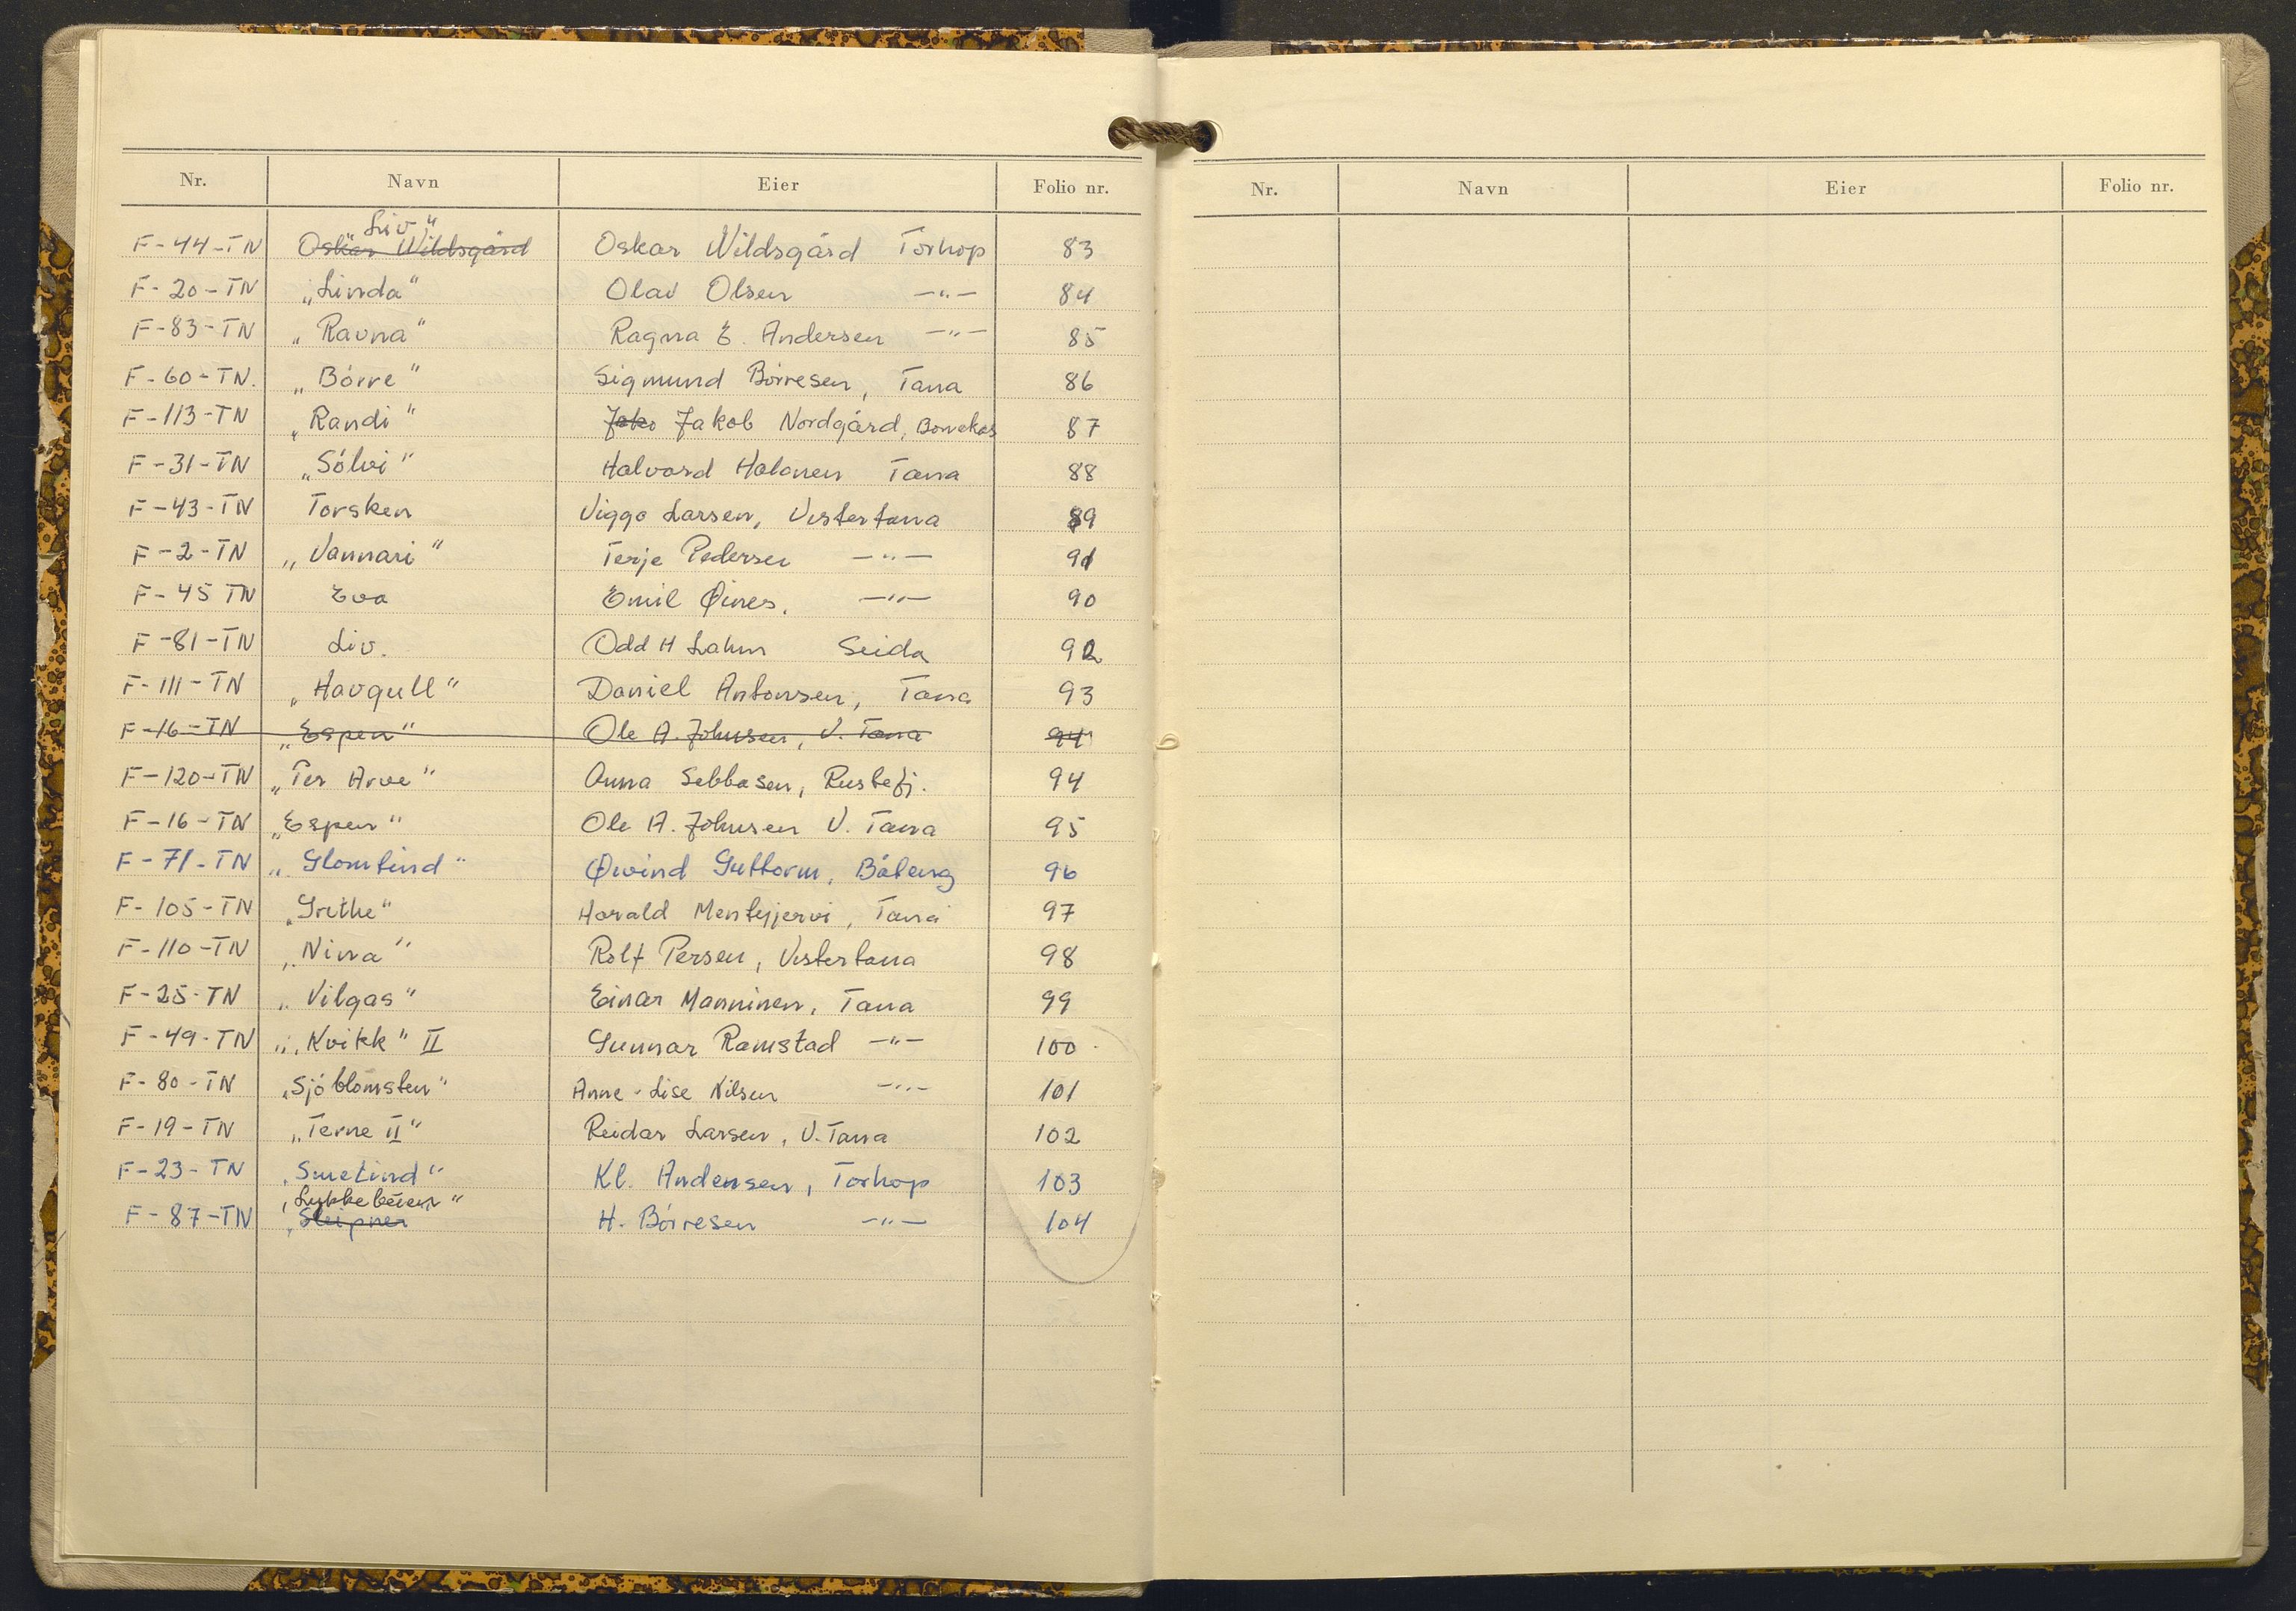 Nr. Navn Eier Folio nr.
"Liv"
F-44-TN Oskar Wildsgård Oskar Wildsgård Torhop 83
F-20-TN „Linda" Olav Olsen —"— 84
F-83-TN „Ravna" Ragna E. Andersen —"— 85
F-60-TN. „Børre" Sigmund Børresen, Tana 86
F-113-TN „Randi" Jako Jakob Nordgård, 87
F-31-TN „Sólvi" Halvard Halonen Tana 88
F-43-TN Torsken Viggo Larsen, Vestertana 89
F-2-TN „Vannari" Terje Pedersen —"— 91
F-45 TN Eva Emil Øines. —"— 90
F-81-TN Liv. Odd H Lahm Seida 92
F-111-TN „Havgull" Daniel Antonsen, Tana 93
F-16-TN „Espen" Ole A. Johnsen, V. Tana 94
F-120-TN „Per Arve" Anna Sebbasen, Rustefj. 94
F-16-TN „Espen" Ole A. Johnsen V. Tana 95
F-71-TN „Glomtind" Øivind Guttorm, 96
F-105-TN „Grethe" Harald Mentyjervi, Tana 97
F-110-TN „Nina" Rolf Persen, Vestertana 98
F-25-TN „Vilgas" Einar Manninen, Tana 99
F-49-TN „Kvikk" II Gunnar Ramstad —"— 100
F-80-TN „Sjóblomsten" Anne-Lise Nilsen —"— 101
F-19-TN „Terne II" Reidar Larsen, V. Tana 102
F-23-TN „Snetind" Kl. Andersen, Torhop 103
F-87-TN „Sleipner H. Børresen —"— 104
Nr. Navn Eier Folio nr.